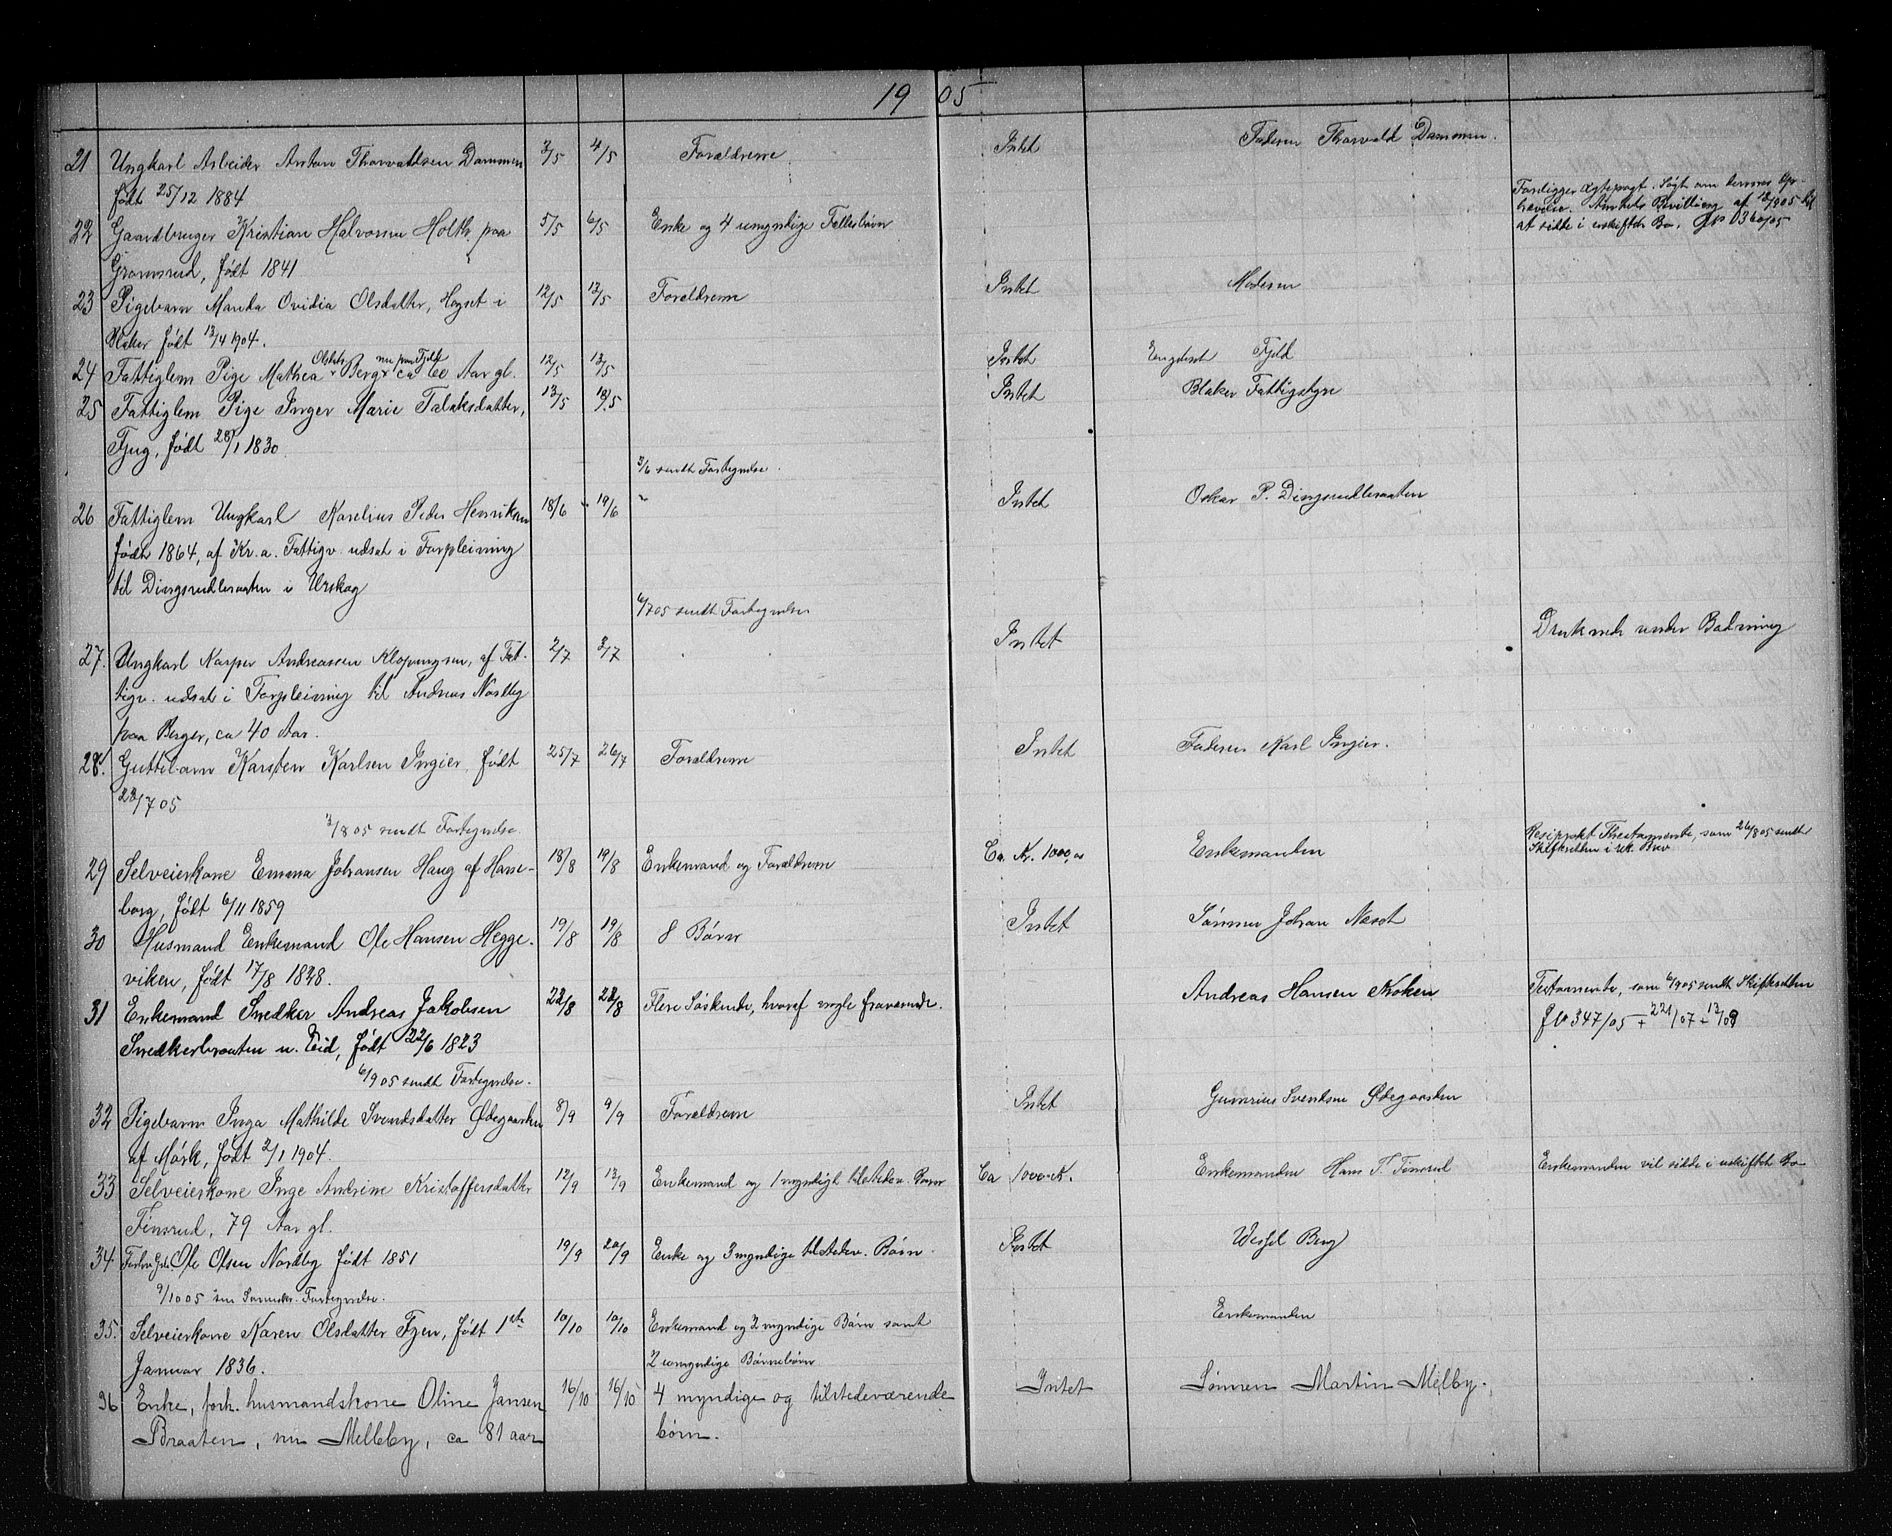 1905
21 Ungkarl Arbeider Anton Thorvaldsen Dammen 3/5 4/5 Forældrene Intet Faderen Thorvald Dammen.
født 25/12 1884
Foreligger Ægtepagt. Søgt om dennes Op-
hævelse. Amtets Bevilling af
at sidde i uskiftet Bo.
22 Gaardbruger Kristian Halvorsen Holth paa 5/5 6/5 Enke og 4 umyndige Fællesbørn
Gramsrud, født 1841
23 Pigebarn Manda Ovidia Olsdatter, Høgset i 12/5 13/5 Forældrene Intet Moderen
Blaker født 13/4 1904.
24 Fattiglem Pige Mathea Olsdtr. Berg nu paa Fjeld ca 60 Aar gl. 12/5 13/5 Intet Engebret Fjeld
25 Fattiglem Pige Inger Marie Falaksdatter, 13/5 Intet Blaker Fattigstyre
Fjug, født 28/1 1830
3/6 sendt Fortegnelse.
26 Fattiglem Ungkarl Karelius Peder Henriksen 18/6 19/6 " Intet Oskar P. Dingsrudbraaten
født 1864, af Kr.a. Fattigv. udsat i Forpleining
til Dingsrudbraaten i Urskog
6/7 05 sendt Fortegnelse
27. Ungkarl Kasper Andreassen Klopungen, af Fat- 2/7 3/7 Intet Druknede under Badning
tigv. udsat i Forpleining til Andreas Nordby
paa Berger, ca 40 Aar.
28. Guttebarn Karsten Karlsen Ingier, født 25/7 26/7 Forældrene Intet Faderen Karl Ingier.
22/7 05
3/8 05 sendt Fortegnelse.
29 Selveierkone Emma Johansen Haug af Hane- 18/8 19/8 Enkemand og Forældrene Ca. Kr. 1000,00 Enkemanden Resiprokt Thestamente, som 26/8 05 sendt
Skifteretten i rek. Brev.
borg, født 6/11 1859
30 Husmand Enkemand Ole Hansen Hegge- 19/8 19/8 8 Børn Intet Sønnen Johan Næset
viken, født 17/8 1828.
31 Enkemand Snedker Andreas Jakobsen 22/8 22/8 Flere Søskende, hvoraf nogle fraværende. Andreas Hansen Kroken Testamente, som 6/9 05 sendt Skifteretten
347/05 + 221/07
Snedkerbraaten u. Eid, født 22/6 1823
6/9 05 sendt Fortegnelse.
32 Pigebarn Inga Mathilde Svendsdatter Ødegaarden 8/9 9/9 Forældrene Intet Gunerius Svendsen Ødegaarden
af Mørk, født 2/1 1904.
33 Selveierkone Inge Andrine Kristoffersdatter 12/9 13/9 Enkemand og 1 myndigt tilstedev. Barn Ca 1000 Kr. Enkemanden Hans T. Finsrud Enkemanden vil sidde i uskiftet Bo
Finsrud, 79 Aar gl.
34 Ole Olsen Nordby født 1851 19/9 20/9 Enke og 3 myndige tilstedev. Børn. Intet Wessel Berg
9/10 05 Fortegnelse.
35. Selveierkone Karen Olsdatter Fjen, født 1ste 10/10 10/10 Enkemand og 2 myndige Børn samt Enkemanden
Januar 1836. 2 umyndige Børnebørn
36 Enke, forh. husmandskone Oline Jansen 16/10 16/10 4 myndige og tilstedeværende Intet Sønnen Martin Melby.
Braaten, nu Melleby, ca 81 aar børn.